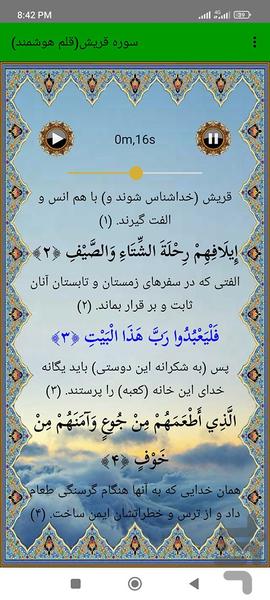 8:42 PM
سوره قریش(قلم هوشمند)
0m,16s
قریش (خداشناس شوند و) با هم انس و
الفت گیرند. (۱)
إِيلَافِهِمْ رِحْلَةَ الشِّتَاءِ وَالصَّيْفِ ﴿٢﴾
الفتی که در سفرهای زمستان و تابستان آنان
ثابت و بر قرار بماند. (۲)
فَلْيَعْبُدُوا رَبَّ هَذَا الْبَيْتِ ﴿٣﴾
پس (به شکرانه این دوستی) باید یگانه
خدای این خانه (کعبه) را پرستند. (۳)
الَّذِي أَطْعَمَهُمْ مِنْ جُوعٍ وَآمَنَهُمْ مِنْ
خَوْفٍ ﴿۴﴾
همان خدایی که به آنها هنگام گرسنگی طعام
داد و از ترس و خطراتشان ایمن ساخت. (۴)